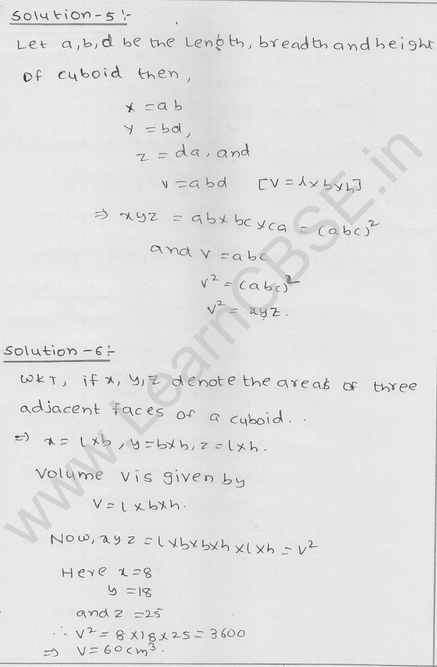 Solution-5:-
Let a, b, d be the Length, breadth and height
Of cuboid then,
x = ab
y = bd,
z = da, and
v = abd [V = l×b×h]
⇒ xyz = ab × bc × ca = (abc)²
and v = abc
v² = (abc)²
v² = xyz.
Solution-6:-
WKT, if x, y, z denote the areas of three
adjacent faces of a cuboid..
⇒ x = l×b, y = b×h, z = l×h.
Volume V is given by
V = l×b×h.
Now, xyz = l×b×b×h×l×h = V²
Here x = 8
y = 18
and z = 25
∴ V² = 8×18×25 = 3600
⇒ V = 60cm³.
www.LearnCBSE.in